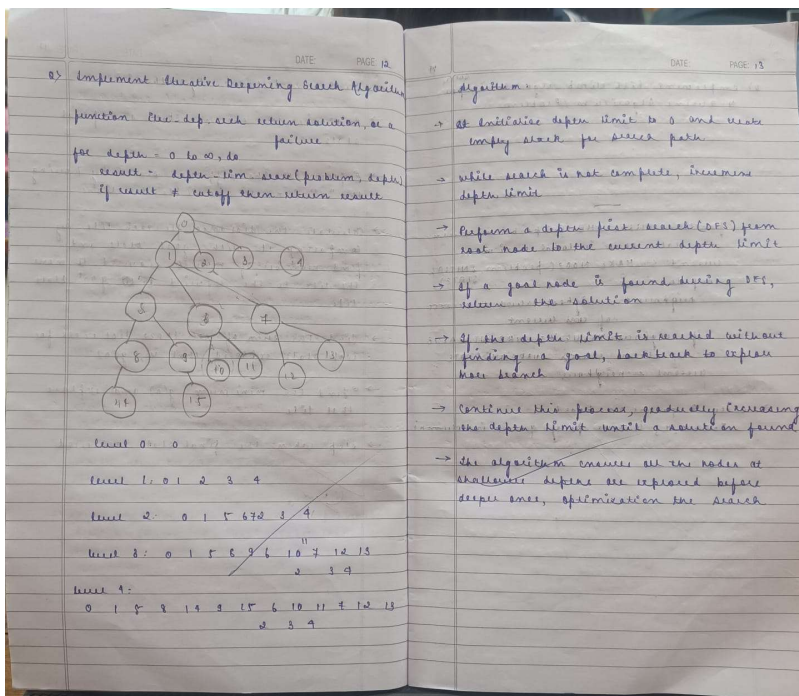 DATE: PAGE 12
Q) Implement Iterative Deepening Search Algorithm
function iter-dep. sech return solution, or a
failure
for depth = 0 to ∞, do
result = depth-lim. searc (problem, depth)
if result ≠ cutoff then return result
0
1 2 3 4
5 6 7
8 9 10 11 12 13
14 15
level 0: 0
level 1: 0 1 2 3 4
level 2: 0 1 5 6 7 2 3 4
level 3: 0 1 5 8 9 6 10 11 7 12 13
2 3 4
level 4:
0 1 5 8 14 9 15 6 10 11 7 12 13
2 3 4
DATE: PAGE 13
Algorithm
→ Initialise depth limit to 0 and create
empty stack for search path
→ while search is not complete, increment
depth limit
→ Perform a depth first search (DFS) from
root node to the current depth limit
→ If a goal node is found during DFS,
return the solution
→ If the depth limit is reached without
finding a goal, backtrack to explore
more branch
→ Continue this process, gradually increasing
the depth limit until a solution found
→ The algorithm ensures all the nodes at
shallower depths are explored before
deeper ones, optimization the search